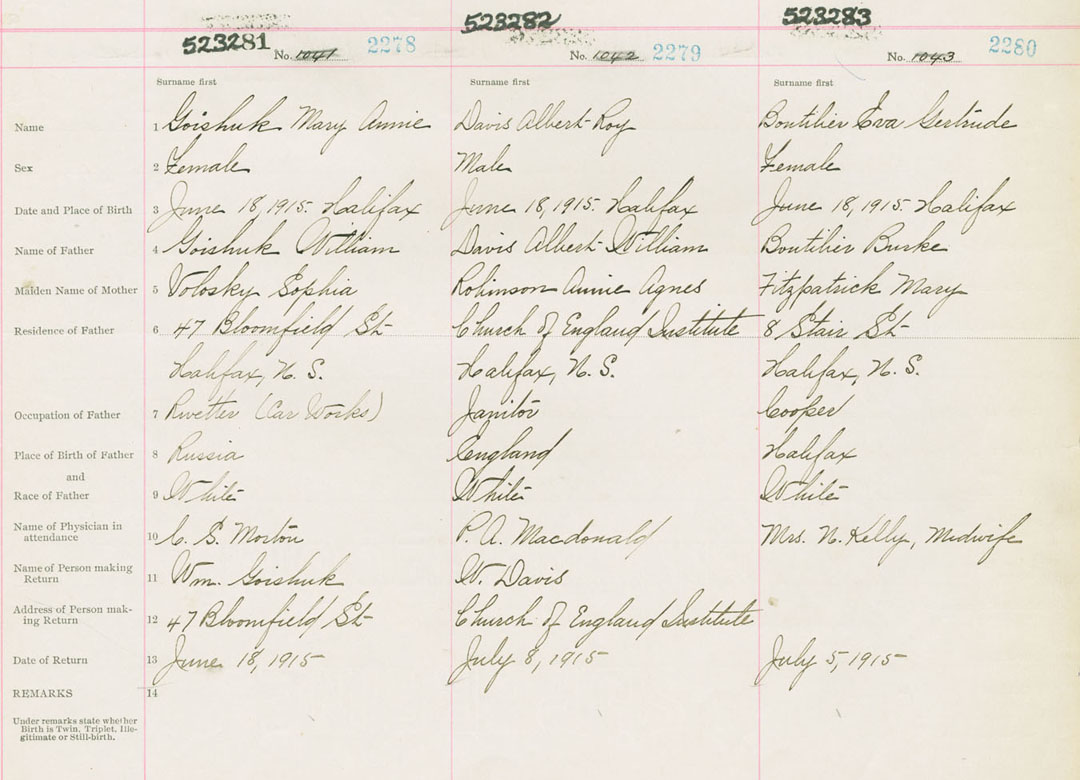 523281 523282 523283
No. 1041 2278 No. 1042 2279 No. 1043 2280
Surname first Surname first Surname first
Name 1 Goishuk Mary Annie Davis Albert Roy Boutilier Eva Gertrude
Sex 2 Female Male Female
Date and Place of Birth 3 June 18, 1915. Halifax June 18, 1915. Halifax June 18, 1915. Halifax
Name of Father 4 Goishuk William Davis Albert William Boutilier Burke
Maiden Name of Mother 5 Volosky Sophia Robinson Annie Agnes Fitzpatrick Mary
Residence of Father 6 47 Bloomfield St Church of England Institute 8 Stair St
Halifax, N. S. Halifax, N. S. Halifax, N. S.
Occupation of Father 7 (Car Works) Janitor Cooper
Place of Birth of Father 8 Russia England Halifax
and
Race of Father 9 White White White
Name of Physician in
attendance 10 C. S. Morton P. A. Macdonald Mrs. N. Kelly, Midwife
Name of Person making
Return 11 Wm. Goishuk W. Davis
Address of Person mak-
ing Return 12 47 Bloomfield St Church of England Institute
Date of Return 13 June 18, 1915 July 8, 1915 July 5, 1915
REMARKS 14
Under remarks state whether
Birth is Twin, Triplet, Ille-
gitimate or Still-birth.